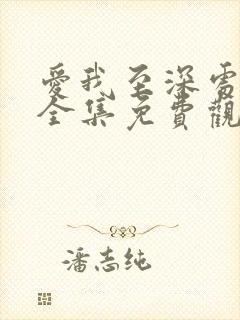 愛我至深電
全集免費觀
潘志纯